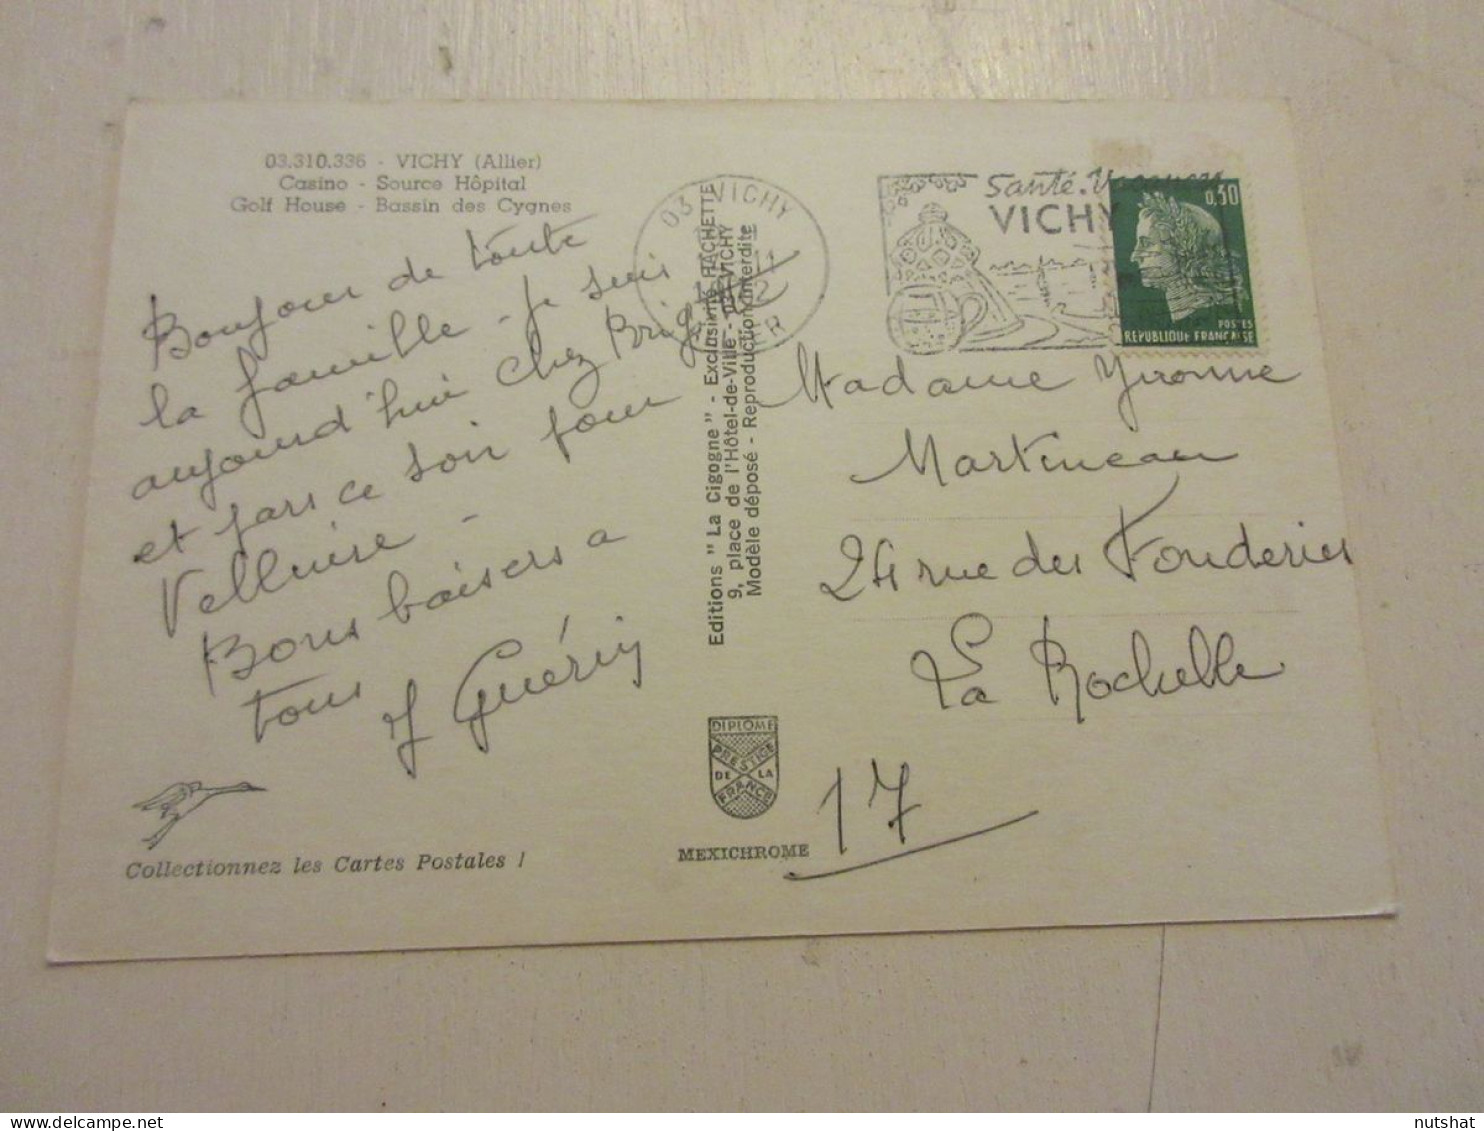 03.310.336 - VICHY (Allier)
Casino - Source Hôpital
Golf House - Bassin des Cygnes
Bonjour de toute
la famille - je suis
aujourd'hui chez Brig
et pars ce soir pour
Velluire -
Bons baisers a
tous
J Guérin
Collectionnez les Cartes Postales !
Editions "La Cigogne" - Exclusivité HACHETTE
9, place de l'Hôtel-de-Ville - 03-VICHY
Modèle déposé - Reproduction interdite
DIPLOME
PRESTIGE
DE LA
FRANCE
MEXICHROME
03 VICHY
Santé.
VICHY
0,30
POSTES
REPUBLIQUE FRANÇAISE
Madame Yvonne
Martineau
24 rue des Fonderies
La Rochelle
17
nutshat